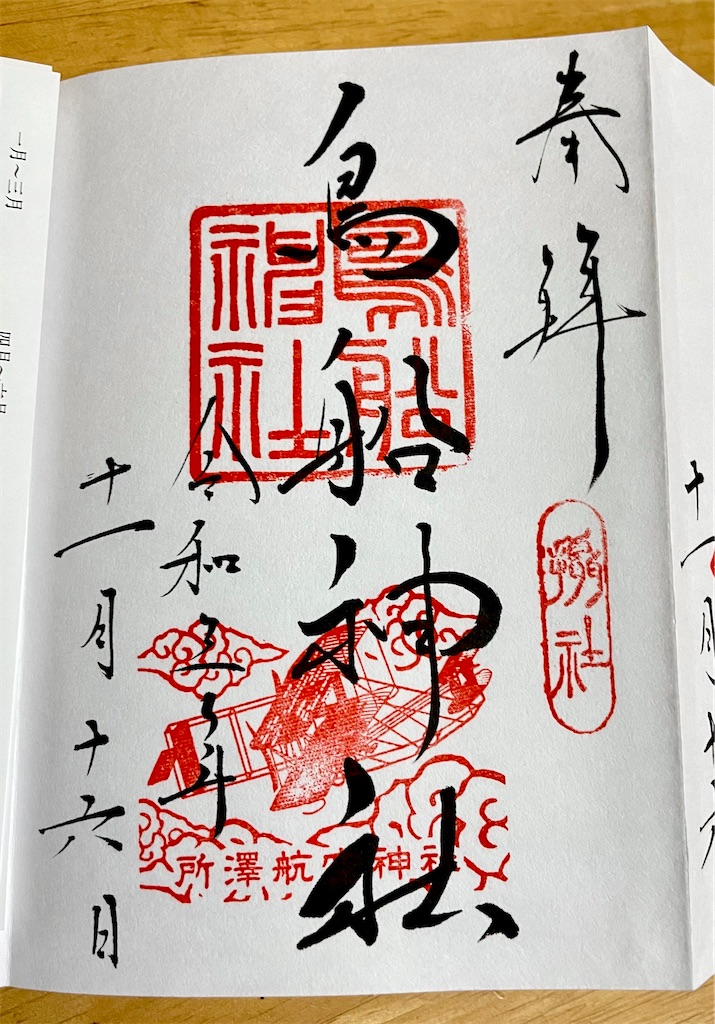 奉拝
鳥船神社
鳥船
神社
令和五年
十一月十六日
所澤航空神社
一月〜三月
四月〜六月
十一月